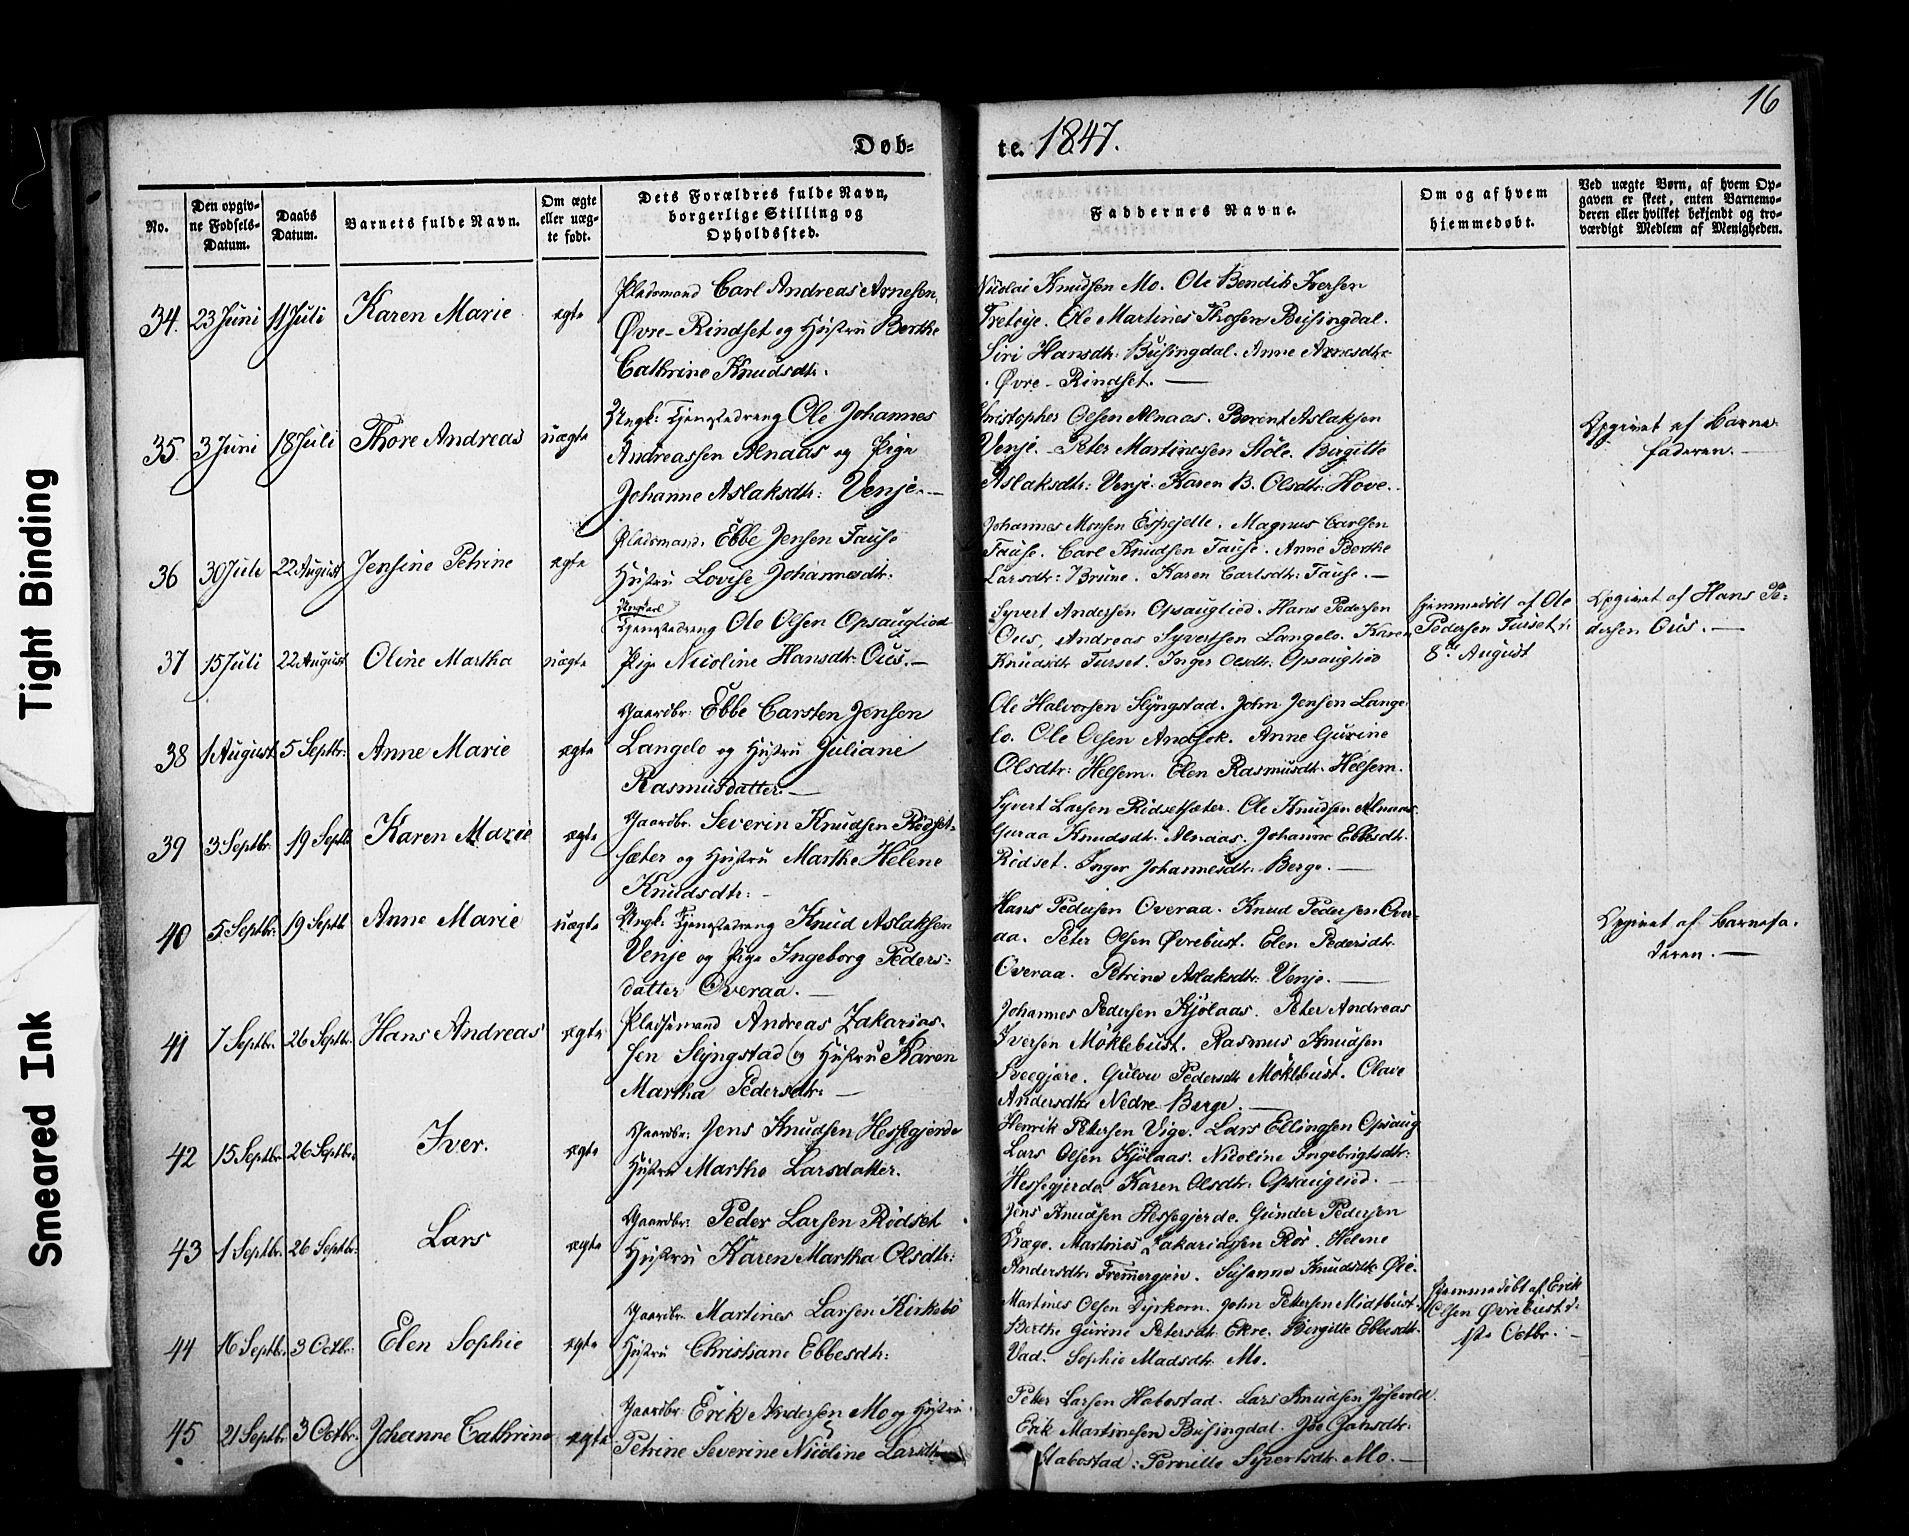 16
Døb=
te. 1847.
No.
Den opgiv-
ne Fødsels-
Datum.
Daabs
Datum.
Barnets fulde Navn.
Om ægte
eller uæg-
te født.
Dets Forældres fulde Navn,
borgerlige Stilling og
Opholdssted.
Faddernes Navne.
Om og af hvem
hjemmedøbt.
Ved uægte Børn, af hvem Op-
gaven er skeet, enten Barnemo-
deren eller hvilket bekjendt og tro-
værdigt Medlem af Menigheden.
34. 23 Juni 11 Juli Karen Marie ægte
Pladsmand Carl Andreas Arnesen,
Øvre-Rindset og Hustru Berthe
Cathrine Knudsdtr.
Nicolai Knudsen Mo. Ole Bendik Iversen
Tretøye. Ole Martines Thosen Busingdal.
Siri Hansdtr: Busingdal. Anne Arnesdtr
Øvre-Rindset. —
35. 3 Juni 18 Juli Thore Andreas uægte
Ungk: Tjenestedreng Ole Johannes
Andreassen Alnaas og Pige
Johanne Aslaksdtr: Venje. —
Christopher Olsen Alnaas. Berent Aslaksen
Venje. Peter Martinessen Støle. Birgitte
Aslaksdtr: Venje. Karen B. Olsdtr: Hove.
Opgivet af Barne-
faderen. —
36 30 Juli 22 August Jensine Petrine ægte
Pladsmand. Ebbe Jensen Tause
Hustru Lovise Johannesdtr.
Johannes Monsen Espejelle. Magnus Carlsen
Tause. Carl Knudsen Tause. Anne Berthe
Larsdtr: Brune. Karen Carlsdtr: Tause. —
37 15 Juli 22 August Oline Martha uægte
Ungkarl
Tjenestedreng Ole Olsen Opsauglied
Pige Nicoline Hansdtr: Ous. —
Syvert Andersen Opsauglied. Hans Pedersen
Ous, Andreas Syvertsen Langelo. Karen
Knudsdtr Turset. Inger Olsdtr: Opsauglied
Hjemmedøbt af Ole
Pedersen Turset
8de August
Opgivet af Hans Pe-
dersen Ous. —
38 1 August 5 Septbr: Anne Marie ægte
Gaardbr: Ebbe Carsten Jensen
Langelo og Hustru Juliane
Rasmusdatter. —
Ole Halvorsen Slyngstad. John Jensen Lange-
lo. Ole Olsen Andsok. Anne Gurine
Olsdtr: Helsem. Elen Rasmusdtr. Helsem.
39 3 Septbr. 19 Septb Karen Marie ægte
Gaardbr. Severin Knudsen Rødset-
sæter og Hustru Marthe Helene
Knudsdtr: —
Syvert Larsen Ridsetsæter. Ole Knudsen Alnaas
Guraa Knudsdtr. Alnaas. Johanne Ebbesdtr.
Ridset. Inger Johannesdtr. Berge. —
40 5 Septbr: 19 Septb Anne Marie uægte
Ungk: Tjenestedreng Knud Aslaksen
Venje og Pige Ingeborg Peders-
datter Overaa. —
Hans Pedersen Overaa. Knud Pedersen Over-
aa. Peter Olsen Øvrebust. Elen Pedersdtr.
Overaa. Petrine Aslaksdtr. Venje. —
Opgivet af Barnefa-
deren. —
41 7 Septbr. 26 Septbr. Hans Andreas ægte
Pladsemand Andreas Zakarias-
sen Slyngstad og Hustru Karen
Martha Pedersdtr: —
Johannes Pedersen Kjølaas. Peter Andreas
Iversen Møklebust. Rasmus Knudsen
Sveegjære. Gulve Pedersdtr Møklebust. Olave
Andersdtr Nedre Berge. —
42 15 Septbr 26 Septbr. Iver. ægte
Gaardbr: Jens Knudsen Hessegjerde
Hustru Marthe Larsdatter.
Henrik Petersen Vige. Lars Ellingsen Opsaug
Lars Olsen Kjølaas. Nicoline Ingebrigtsdtr:
Hessegjerde. Karen Olsdtr. Opsauglied. —
43 1 Septbr. 26 Septbr: Lars ægte
Gaardbr. Peder Larsen Rødset
Hustru Karen Martha Olsdtr:
Jens Knudsen Hessegjerde. Gunder Pedersen
Fræge. Martines Zakariassen Rør. Helene
Andersdtr. Fremmergjere. Susanne Knudsdtr Øie.
44 16 Septbr. 3 Octbr. Elen Sophie ægte
Gaardbr. Martines Larsen Kirkebø
Hustru Christiane Ebbesdtr:
Martines Olsen Dyrkorn. John Pettersen Midtbust.
Berthe Gurine Petersdtr. Ekre. Birgitte Ebbesdtr.
Vad. Sophie Madsdtr. Mo.
Hjemmedøbt af Erik
Olsen Øvrebust d.
1ste Octbr. —
45 21 Septbr 3 Octbr. Johanne Cathrine ægte
Gaardbr: Erik Andersen Mo og Hustru
Petrine Severine Nicoline Larsdtr
Petter Larsen Habostad. Lars Knudsen
Erik Martinesen Busingdal. Jansdtr.
Habostad. Pernille Syvertsdtr. Mo. —
Tight Binding
Smeared Ink